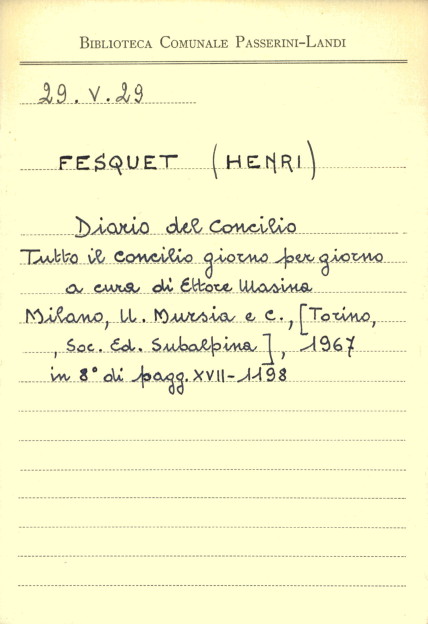 BIBLIOTECA COMUNALE PASSERINI-LANDI
29. V. 29
FESQUET (HENRI)
Diario del Concilio
Tutto il concilio giorno per giorno
a cura di Ettore Masina
Milano, U. Mursia e C., [Torino,
, Soc. Ed. Subalpina], 1967
in 8° di pagg. XVII-1198